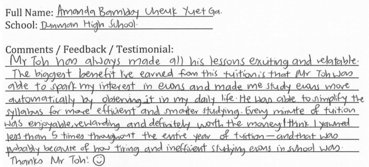 Full Name: Amanda Barmby Cheuk Yuet Ga
School: Dunman High School
Comments / Feedback / Testimonial:
Mr Toh has always made all his lessons exciting and relatable.
The biggest benefit I've earned from this tuition is that Mr Toh was
able to spark my interest in econs and made me study econs more
automatically by observing it in my daily life. He was able to simplify the
syllabus for more efficient and smarter studying. Every minute of tuition
was engaging, rewarding and definitely worth the money! I think I yawned
less than 5 times throughout the entire year of tuition - and that was
probably because of how tiring and inefficient studying econs in school was.
Thanks Mr Toh!